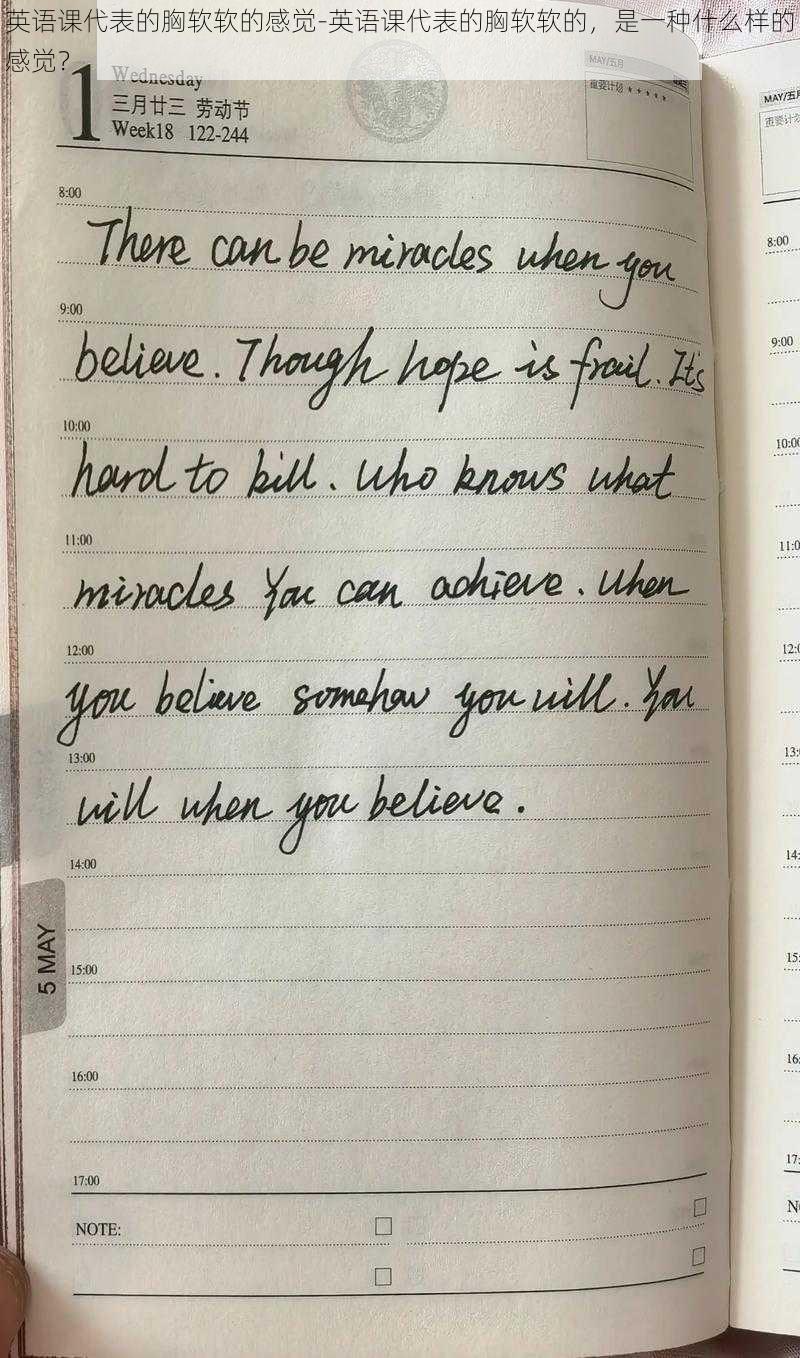 英语课代表的胸软软的感觉-英语课代表的胸软软的，是一种什么样的
感觉？
1
Wednesday
三月廿三 劳动节
Week18 122-244
MAY/五月
重要计划 ★★★★★
8:00
There can be miracles when you
9:00
believe. Though hope is frail. It's
10:00
hard to kill. Who knows what
11:00
miracles You can achieve. When
12:00
you believe somehow you will. You
13:00
will when you believe.
14:00
5 MAY
15:00
16:00
17:00
NOTE:
MAY/五月
重要计划
8:00
9:00
10:00